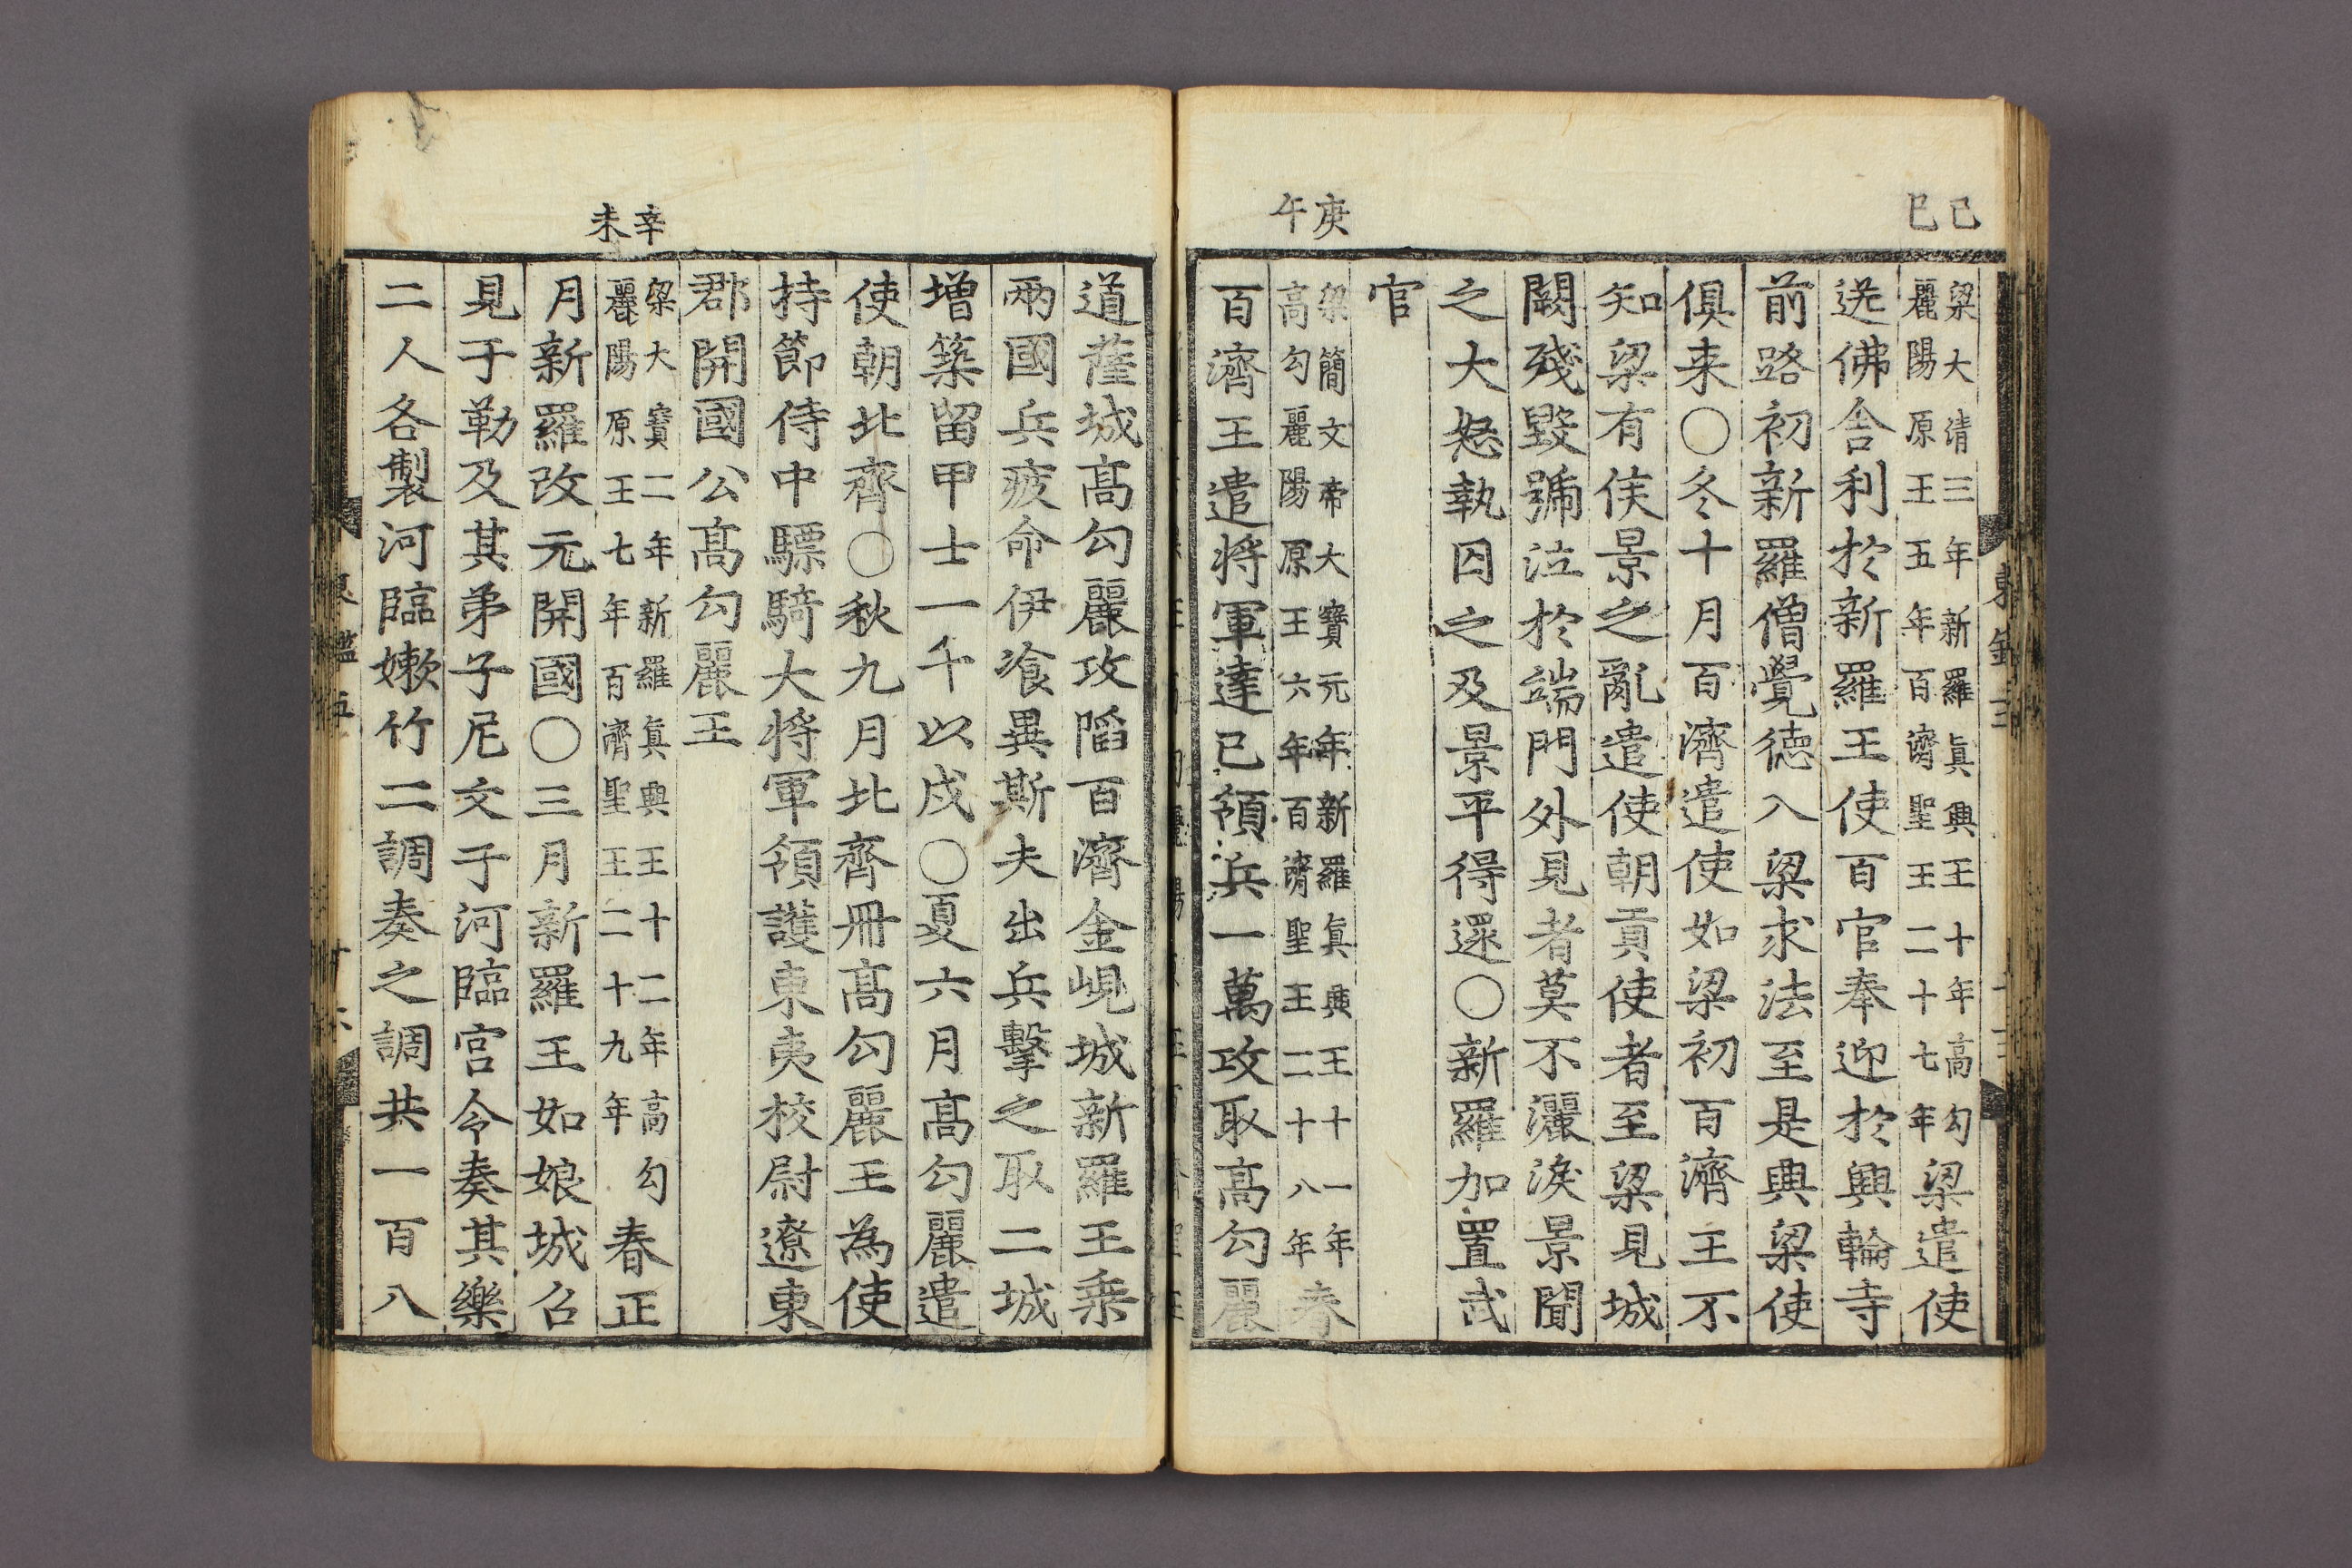 己巳
梁大清三年新羅眞興王十年高勾
麗陽原王五年百濟聖王二十七年
梁遣使
送佛舎利於新羅王使百官奉迎於興輪寺
前路初新羅僧覺徳入梁求法至是與梁使
俱来〇冬十月百濟遣使如梁初百濟王不
知梁有侯景之亂遣使朝貢使者至梁見城
闕殘毀號泣於端門外見者莫不灑淚景聞
之大怒執囚之及景平得還〇新羅加置武
官
庚午
梁簡文帝大寶元年新羅眞興王十一年
高勾麗陽原王六年百濟聖王二十八年
春
百濟王遣将軍達已領兵一萬攻取髙勾麗
道薩城髙勾麗攻䧟百濟金峴城新羅王乗
兩國兵疲命伊飡異斯夫出兵擊之取二城
増築留甲士一千以戍〇夏六月髙勾麗遣
使朝北齊〇秋九月北齊冊髙勾麗王為使
持節侍中驃騎大将軍領護東夷校尉遼東
郡開國公髙勾麗王
辛未
梁大寶二年新羅眞興王十二年高勾
麗陽原王七年百濟聖王二十九年
春正
月新羅改元開國〇三月新羅王如娘城召
見于勒及其弟子尼文于河臨宮令奏其樂
二人各製河臨嫰竹二調奏之調共一百八